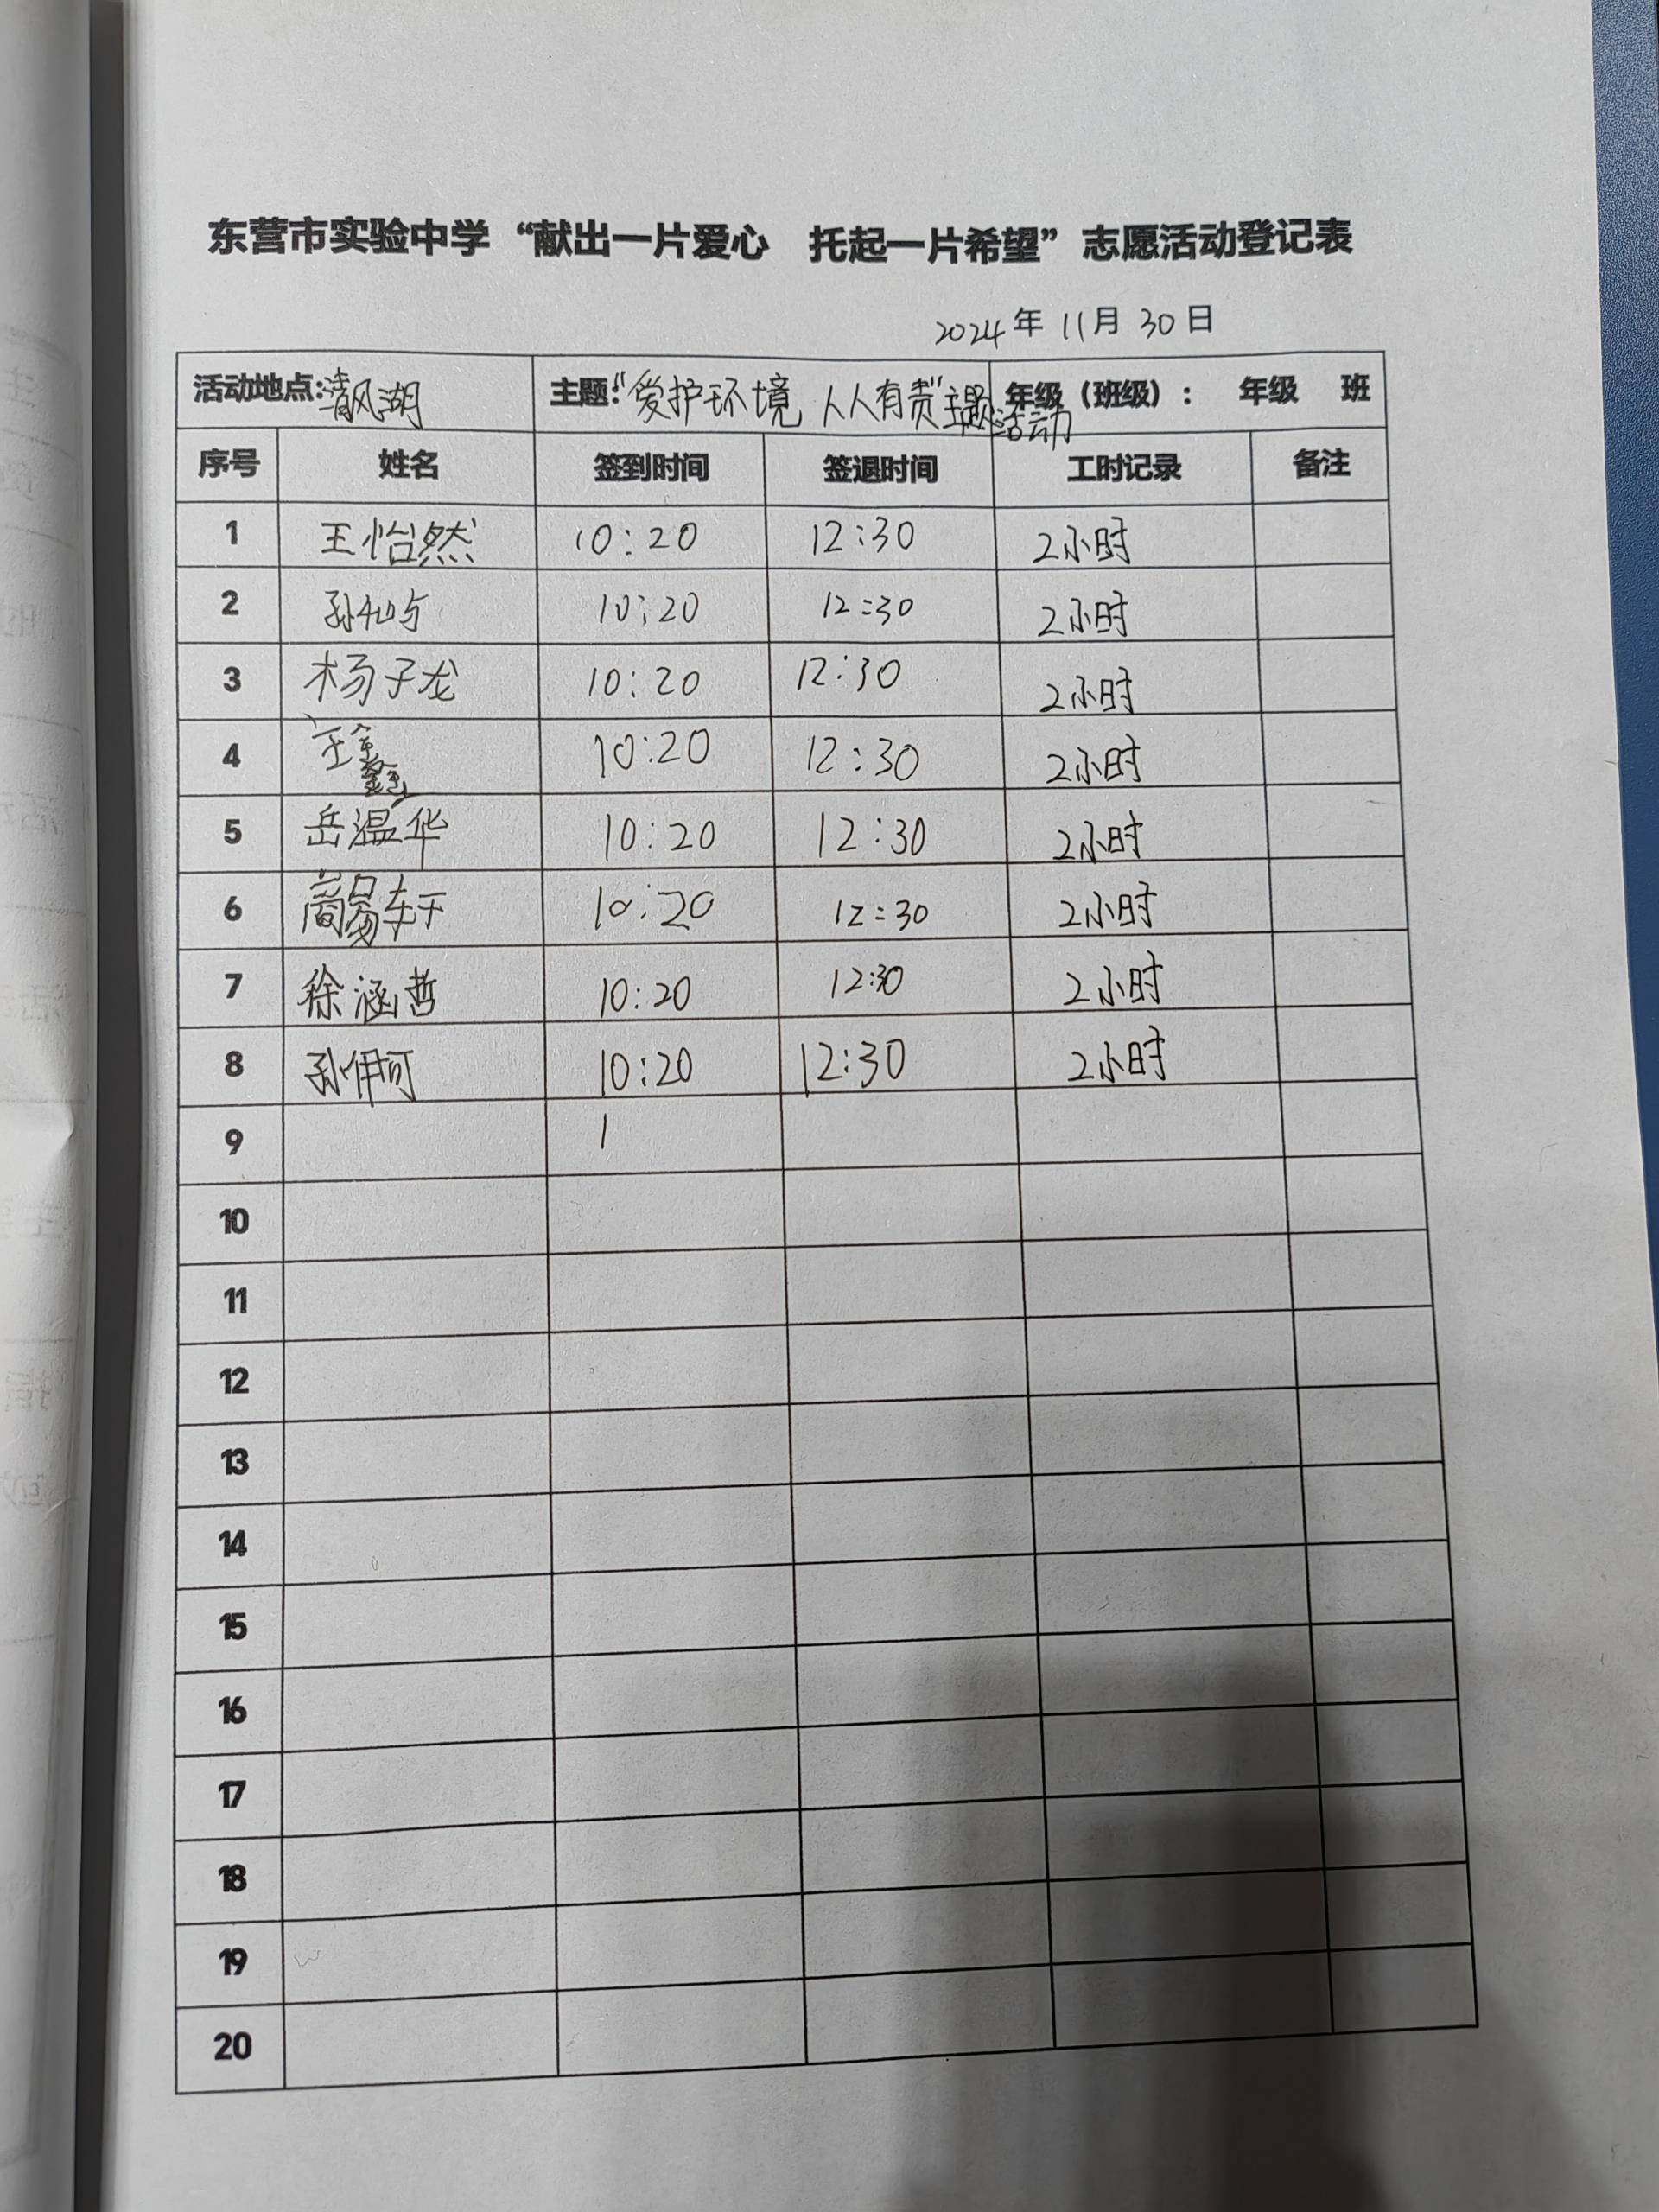 东营市实验中学“献出一片爱心 托起一片希望”志愿活动登记表
2024年 11月 30日
活动地点:清风湖 主题:“爱护环境 人人有责”主题活动 年级(班级): 年级 班
序号 姓名 签到时间 签退时间 工时记录 备注
1 王怡然 10:20 12:30 2小时
2 孙 10:20 12:30 2小时
3 杨子龙 10:20 12:30 2小时
4 10:20 12:30 2小时
5 岳温华 10:20 12:30 2小时
6 10:20 12:30 2小时
7 徐涵哲 10:20 12:30 2小时
8 孙 10:20 12:30 2小时
9 1
10
11
12
13
14
15
16
17
18
19
20